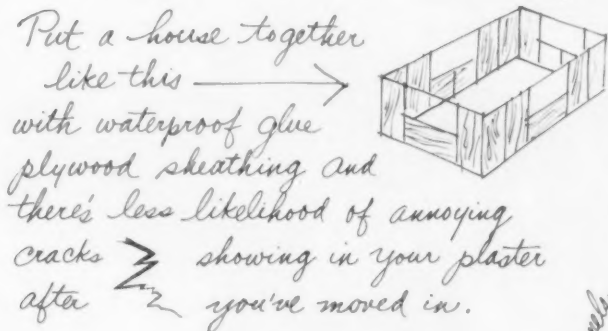 Put a house together
like this
with waterproof glue
plywood sheathing and
there's less likelihood of annoying
cracks showing in your plaster
after you've moved in.